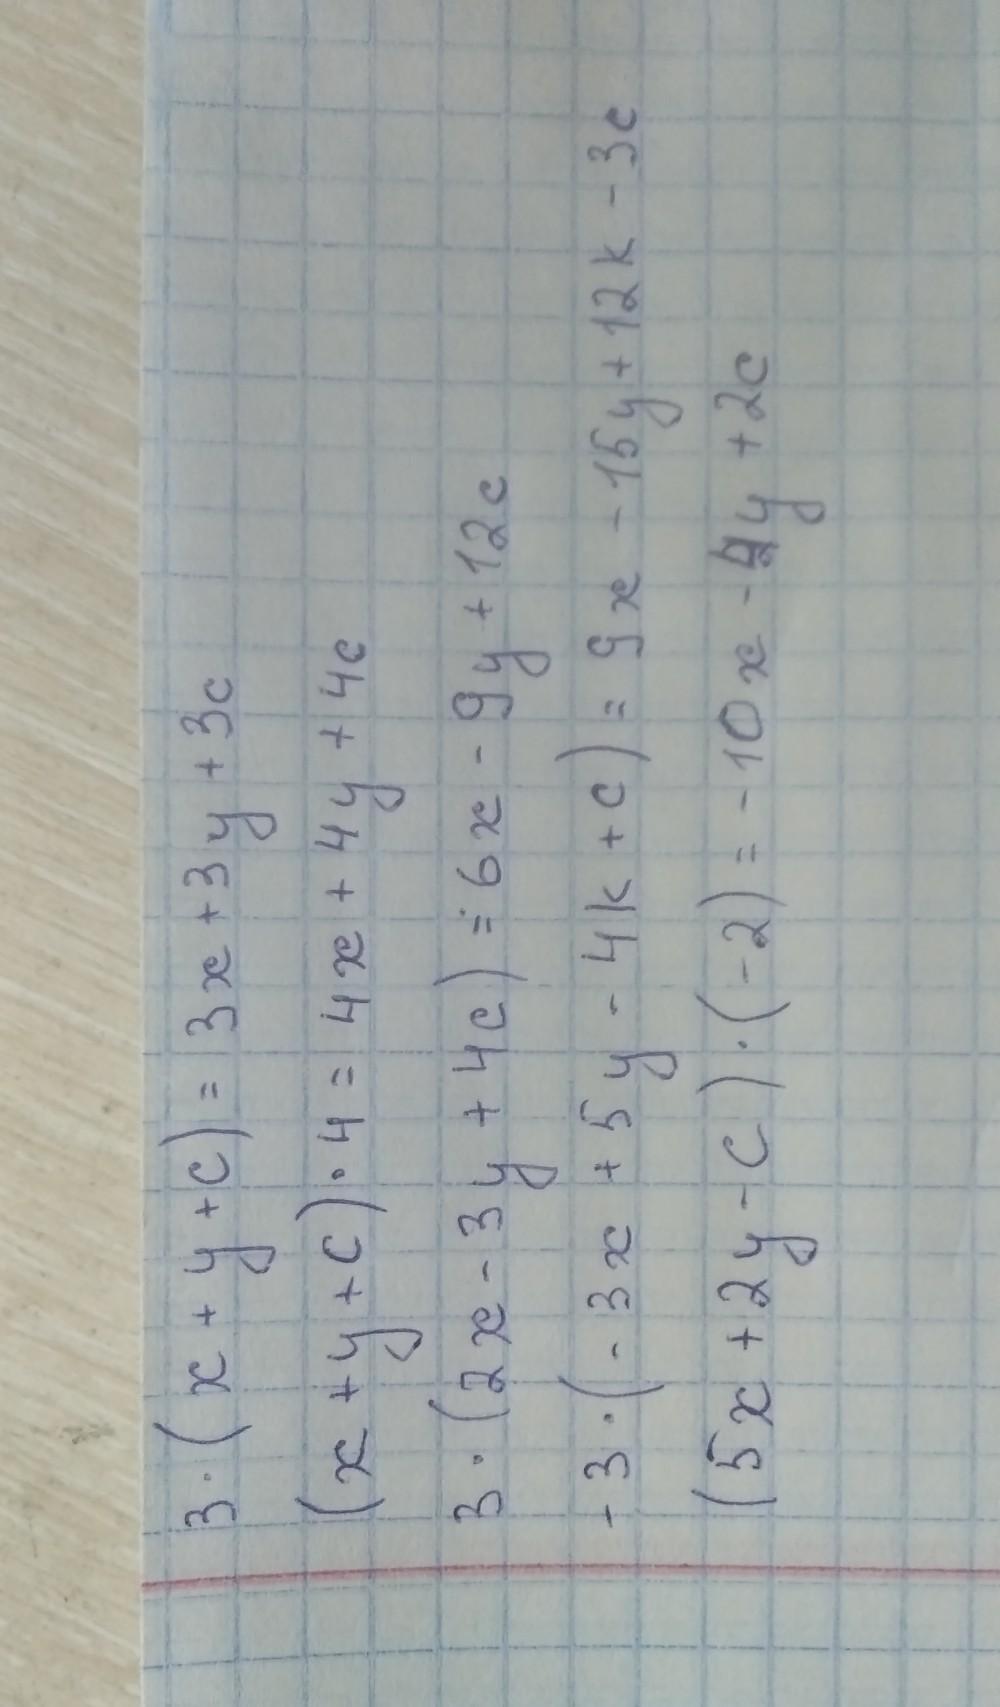 3·(x+y+c)=3x+3y+3c
(x+y+c)·4=4x+4y+4c
3·(2x-3y+4c)=6x-9y+12c
-3·(-3x+5y-4k+c)=9x-15y+12k-3c
(5x+2y-c)·(-2)=-10x-4y+2c